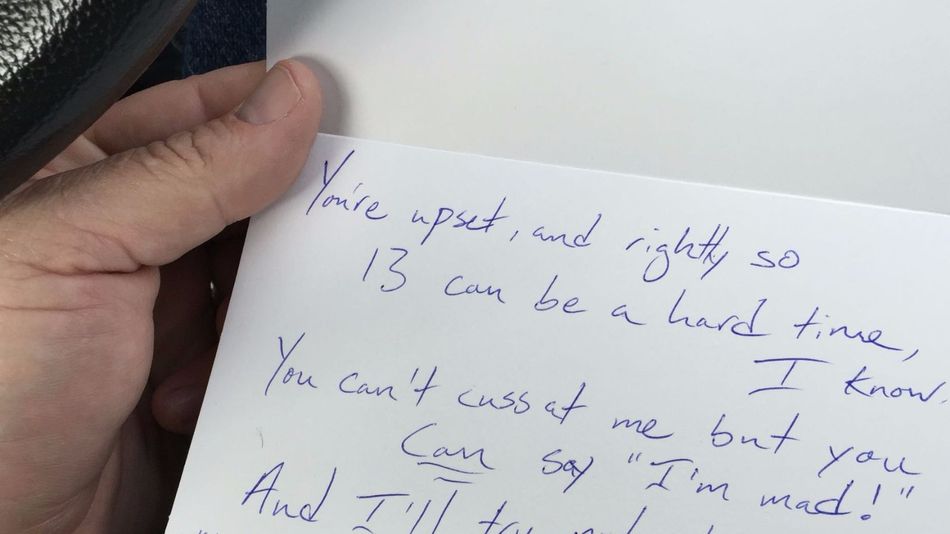 You're upset, and rightly so
13 can be a hard time,
I know.
You can't cuss at me but you
Can say "I'm mad!"
And I'll try